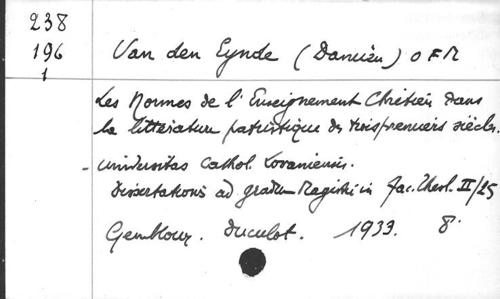 238
196
1
Van den Eynde (Damien) OFM
Les Normes de l'Enseignement Chrétien dans
la littérature patristique des trois premiers siècles.
- Universitas cathol. Lovaniensis.
Dissertationes ad gradum Magistri in Fac. Theol. II/25
Gembloux. Duculot. 1933. 8°